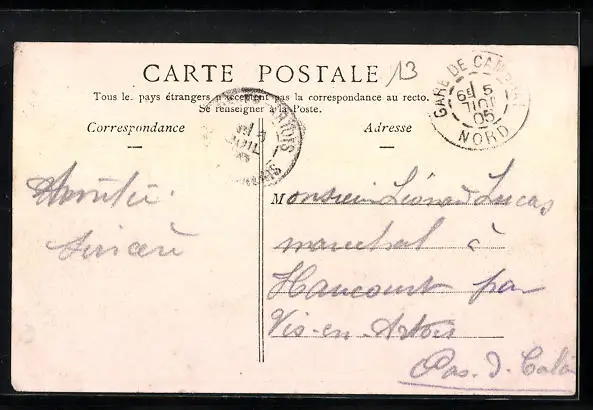 CARTE POSTALE
13
Tous les pays étrangers n'acceptent pas la correspondance au recto.
Se renseigner à la Poste.
Correspondance
Adresse
GARE DE CAMBRAI
6E 5
JUIL
05
NORD
ARTOIS
Amitié
sincère
Monsieur Léonard Lucas
maréchal à
Haucourt par
Vis-en-Artois
Pas. d. Calais